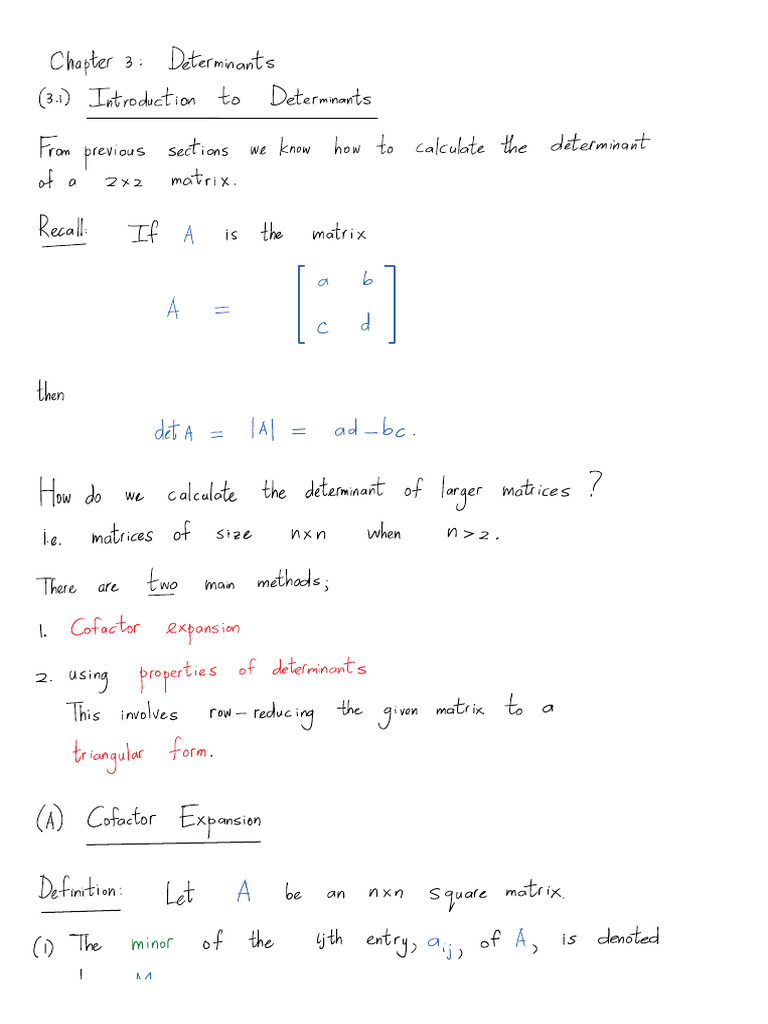 Chapter 3: Determinants
(3.1) Introduction to Determinants
From previous sections we know how to calculate the determinant
of a 2×2 matrix.
Recall: If A is the matrix
A = [ a b
c d ]
then
det A = |A| = ad - bc.
How do we calculate the determinant of larger matrices ?
i.e. matrices of size n×n when n>2.
There are two main methods;
1. Cofactor expansion
2. using properties of determinants
This involves row-reducing the given matrix to a
triangular form.
(A) Cofactor Expansion
Definition: Let A be an n×n square matrix.
(1) The minor of the ijth entry, aij, of A, is denoted